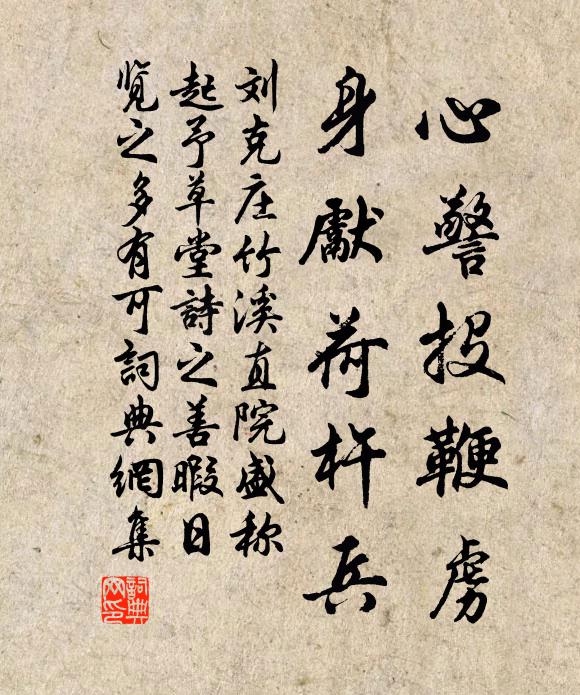 心警投鞭虏
身獻荷杵兵
刘克庄竹溪直院盛称
起予草堂詩之善暇日
览之多有可詞典網集
詞典网印